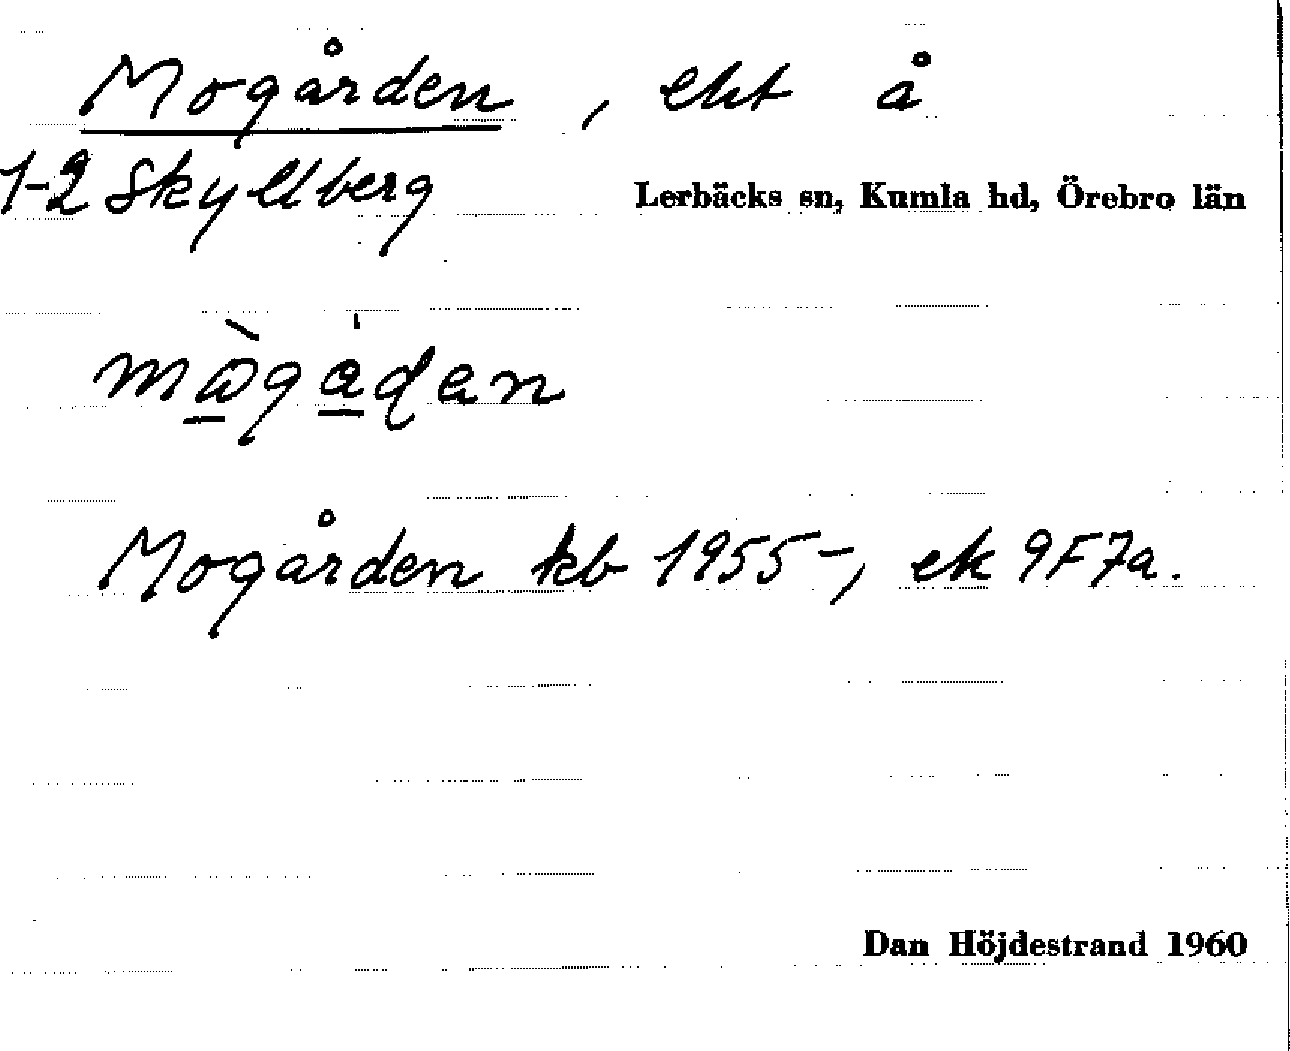 Mogården, eht å
1-2 Skyllberg Lerbäcks sn, Kumla hd, Örebro län
Mogården kb 1955-, ek 9F7a.
Dan Höjdestrand 1960